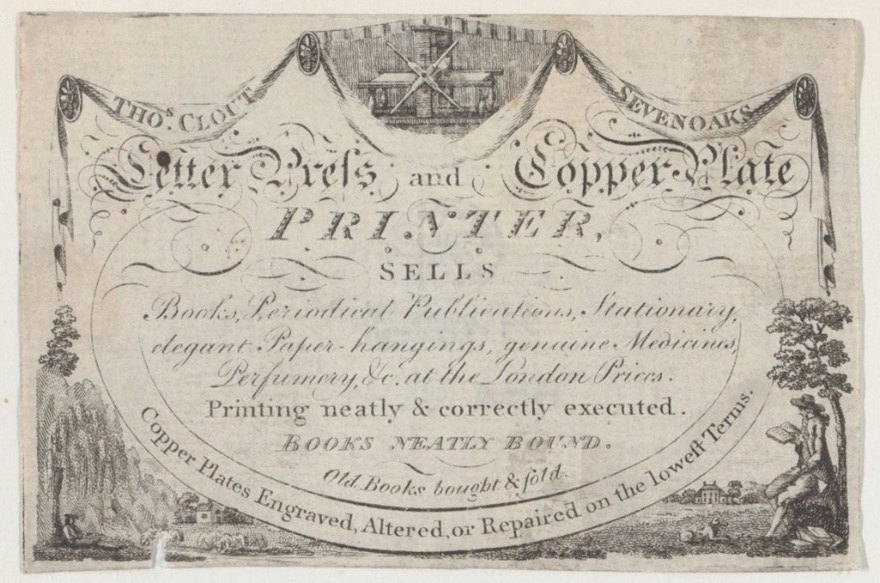 THO.ˢ CLOUT
SEVENOAKS
Letter Preſs and Copper-Plate
PRINTER,
SELLS
Books, Periodical Publications, Stationary,
elegant Paper-hangings, genuine Medicines,
Perfumery, &c. at the London Prices.
Printing neatly & correctly executed.
BOOKS NEATLY BOUND.
Old Books bought & ſold.
Copper Plates Engraved, Altered, or Repaired on the loweſt Terms.